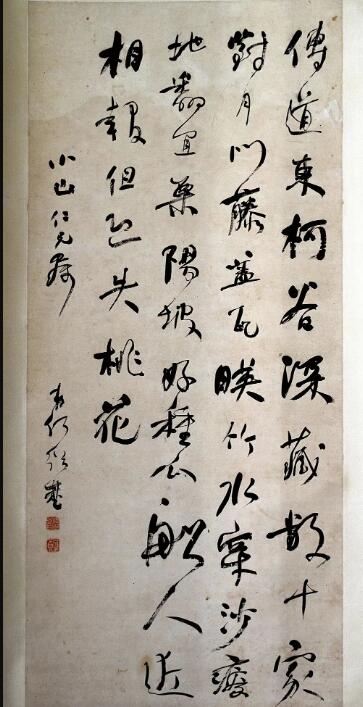 傳道東柯谷深藏數十家
對月門藤蓋瓦暎竹水穿沙瘦
地翻宜粟陽坡好種瓜船人近
相報但恐失桃花
小山仁兄屬